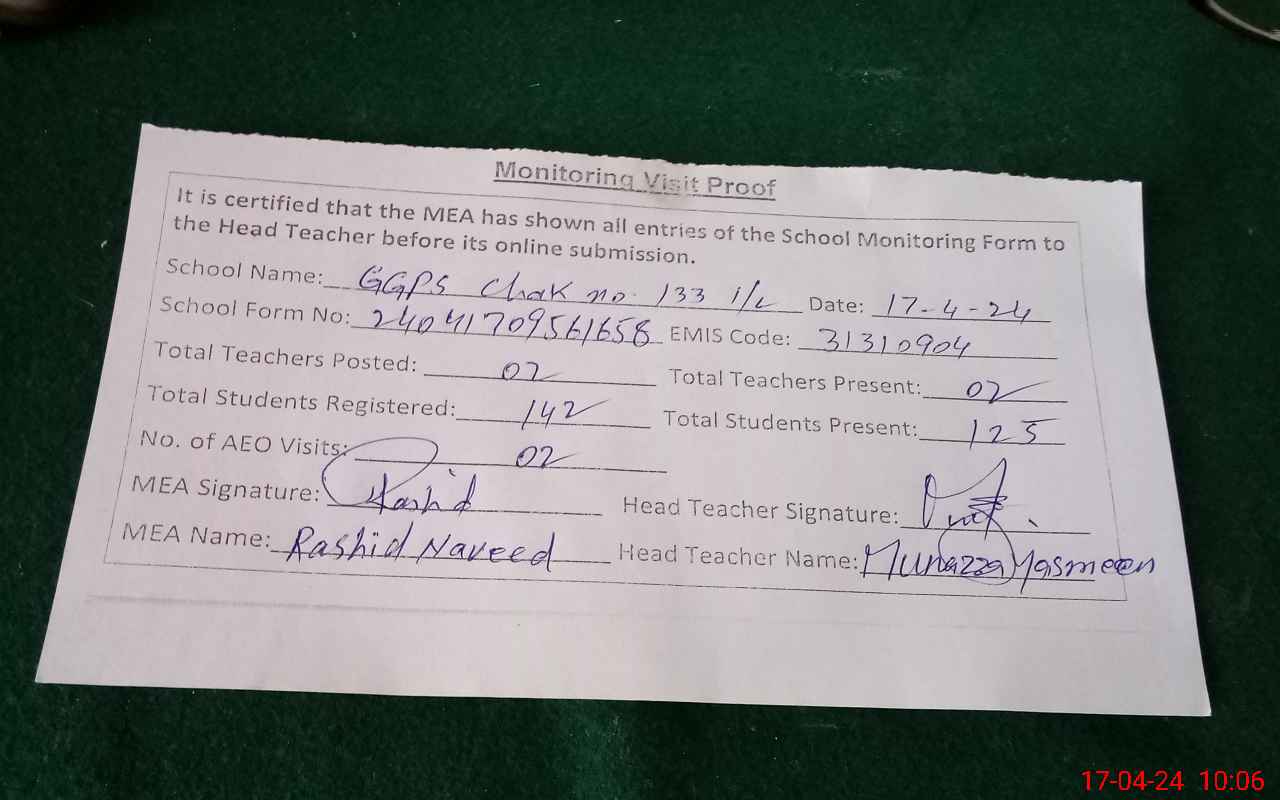 Monitoring Visit Proof
It is certified that the MEA has shown all entries of the School Monitoring Form to
the Head Teacher before its online submission.
School Name: GGPS Chak no. 133 i/L Date: 17-4-24
School Form No: 24041709561658 EMIS Code: 31310904
Total Teachers Posted: 02 Total Teachers Present: 02
Total Students Registered: 142 Total Students Present: 125
No. of AEO Visits: 02
MEA Signature: Rashid Head Teacher Signature:
MEA Name: Rashid Naveed Head Teacher Name: Munazza Yasmeen
17-04-24 10:06